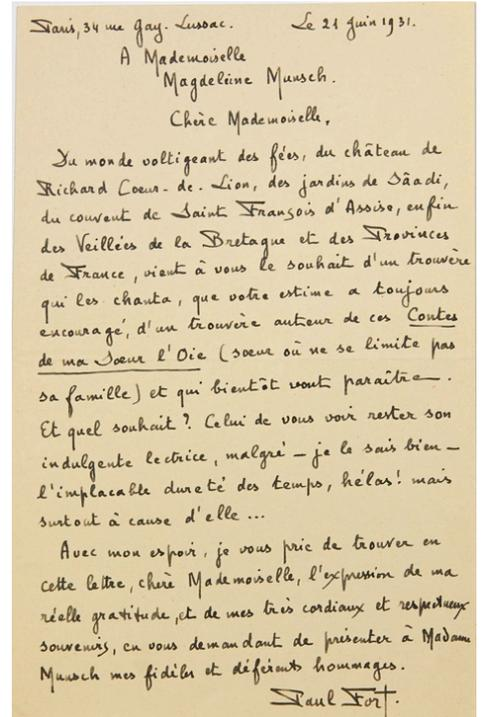 Paris, 34 rue Gay-Lussac. Le 21 Juin 1931.
A Mademoiselle
Magdeleine Munsch.
Chère Mademoiselle,
Du monde voltigeant des fées, du château de
Richard Coeur-de-Lion, des jardins de Sâadi,
du couvent de Saint François d'Assise, enfin
des Veillées de la Bretagne et des Provinces
de France, vient à vous le souhait d'un trouvère
qui les chanta, que votre estime a toujours
encouragé, d'un trouvère auteur de ces Contes
de ma Soeur l'Oie (soeur où ne se limite pas
sa famille) et qui bientôt vont paraître.
Et quel souhait ? Celui de vous voir rester son
indulgente lectrice, malgré – je le sais bien –
l'implacable dureté des temps, hélas! mais
surtout à cause d'elle ...
Avec mon espoir, je vous prie de trouver en
cette lettre, chère Mademoiselle, l'expression de ma
réelle gratitude, et de mes très cordiaux et respectueux
souvenirs, en vous demandant de présenter à Madame
Munsch mes fidèles et déférents hommages.
Paul Fort.